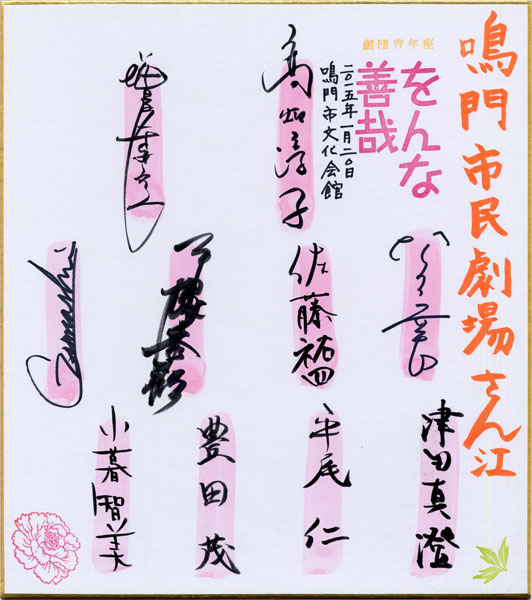 鳴門市民劇場さん江
劇団青年座
をんな
善哉
二〇一五年一月二〇日
鳴門市文化会館
高畑淳子
佐藤祐四
津田真澄
平尾仁
豊田茂
小暮智美